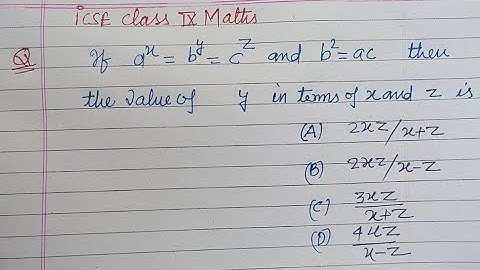 ICSE Class IX Maths
Q If a^x = b^y = c^z and b² = ac then
the value of y in terms of x and z is
(A) 2xz/x+z
(B) 2xz/x-z
(C) 3xz/x+z
(D) 4xz/x-z